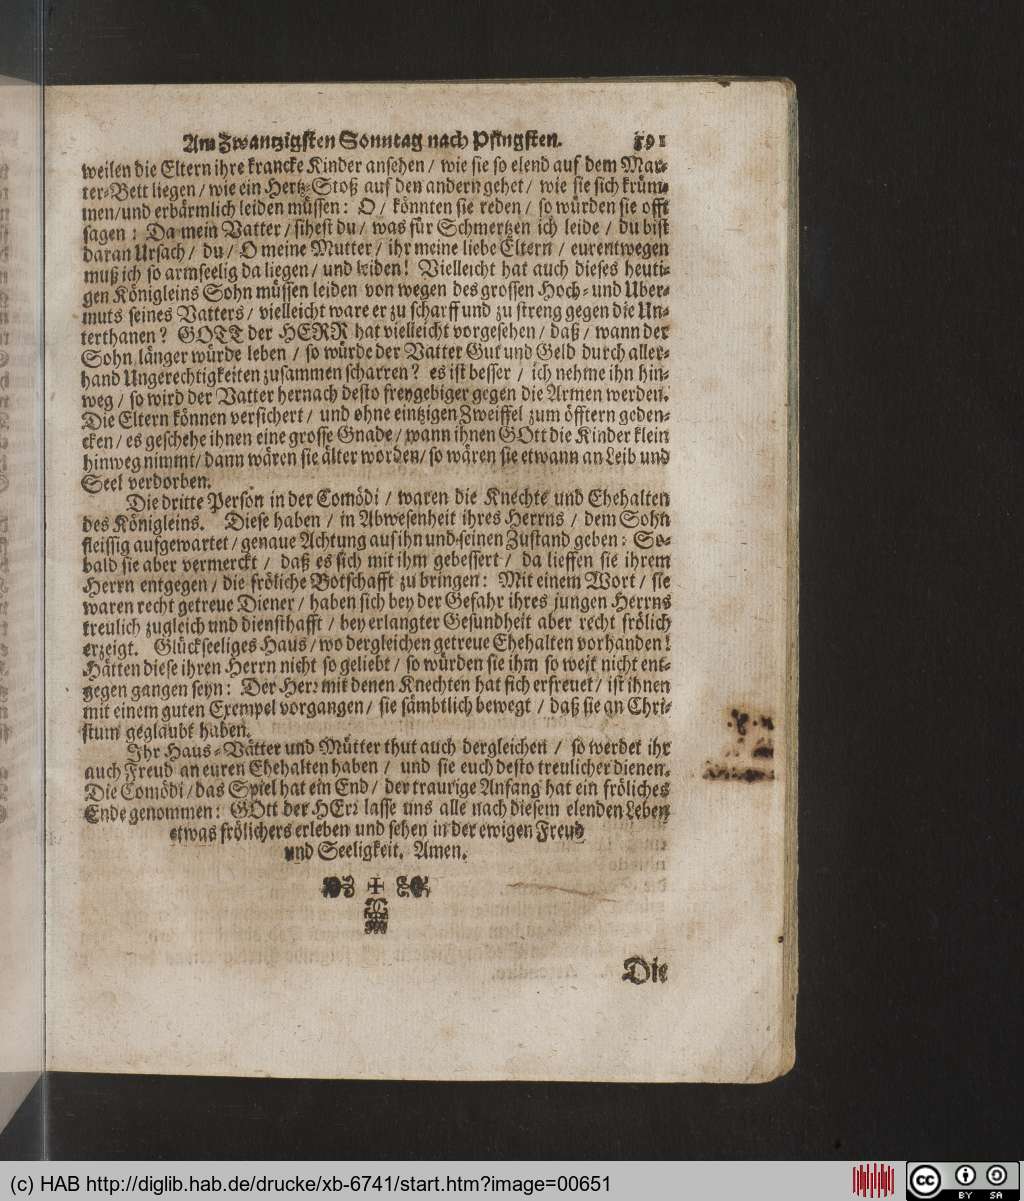 Am Zwantzigsten Sonntag nach Pfingsten. 591
weilen die Eltern ihre krancke Kinder ansehen / wie sie so elend auf dem Mar-
ter-Bett liegen / wie ein Hertz-Stoß auf den andern gehet / wie sie sich krüm-
men/und erbärmlich leiden müssen: O / könnten sie reden / so würden sie offt
sagen: Da mein Vatter / sihest du / was für Schmertzen ich leide / du bist
daran Ursach / du / O meine Mutter / ihr meine liebe Eltern / eurentwegen
muß ich so armseelig da liegen / und leiden! Vielleicht hat auch dieses heuti-
gen Königleins Sohn müssen leiden von wegen des grossen Hoch- und Uber-
muts seines Vatters / vielleicht ware er zu scharff und zu streng gegen die Un-
terthanen? GOTT der HERR hat vielleicht vorgesehen / daß / wann der
Sohn länger würde leben / so würde der Vatter Gut und Geld durch aller-
hand Ungerechtigkeiten zusammen scharren? es ist besser / ich nehme ihn hin-
weg / so wird der Vatter hernach desto freygebiger gegen die Armen werden.
Die Eltern können versichert / und ohne eintzigen Zweiffel zum öfftern geden-
cken / es geschehe ihnen eine grosse Gnade / wann ihnen GOtt die Kinder klein
hinweg nimmt / dann wären sie älter worden / so wären sie etwann an Leib und
Seel verdorben.
Die dritte Person in der Comödi / waren die Knechte und Ehehalten
des Königleins. Diese haben / in Abwesenheit ihres Herrns / dem Sohn
fleissig aufgewartet / genaue Achtung auf ihn und seinen Zustand geben: So-
bald sie aber vermerckt / daß es sich mit ihm gebessert / da lieffen sie ihrem
Herrn entgegen / die fröliche Botschafft zu bringen: Mit einem Wort / sie
waren recht getreue Diener / haben sich bey der Gefahr ihres jungen Herrns
treulich zugleich und diensthafft / bey erlangter Gesundheit aber recht frölich
erzeigt. Glückseeliges Haus / wo dergleichen getreue Ehehalten vorhanden!
Hätten diese ihren Herrn nicht so geliebt / so würden sie ihm so weit nicht ent-
gegen gangen seyn: Der Herꝛ mit denen Knechten hat sich erfreuet / ist ihnen
mit einem guten Exempel vorgangen / sie sämbtlich bewegt / daß sie an Chri-
stum geglaubt haben.
Ihr Haus-Vätter und Mütter thut auch dergleichen / so werdet ihr
auch Freud an euren Ehehalten haben / und sie euch desto treulicher dienen.
Die Comödi / das Spiel hat ein End / der traurige Anfang hat ein fröliches
Ende genommen: GOtt der HErꝛ lasse uns alle nach diesem elenden Leben
etwas frölichers erleben und sehen in der ewigen Freud
und Seeligkeit. Amen.
Die
(c) HAB http://diglib.hab.de/drucke/xb-6741/start.htm?image=00651
cc BY SA